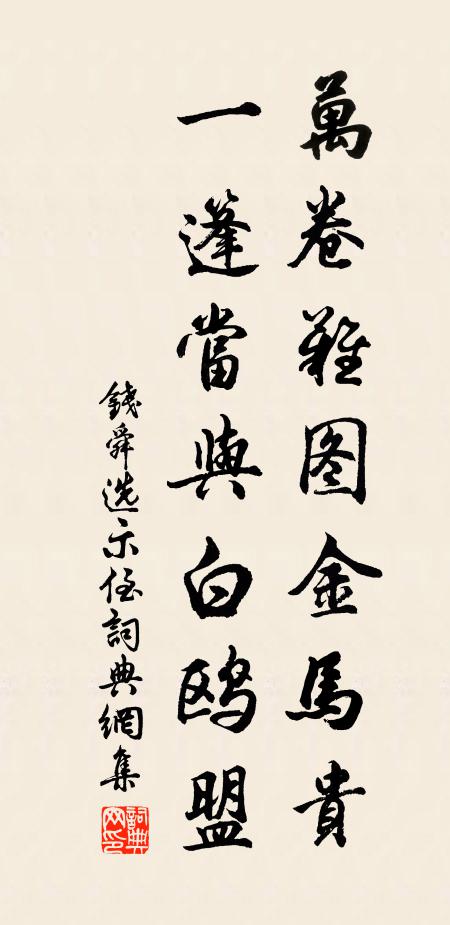 萬卷難图金馬貴
一篷當與白鸥盟
錢舜选示侄詞典網集
詞典网印